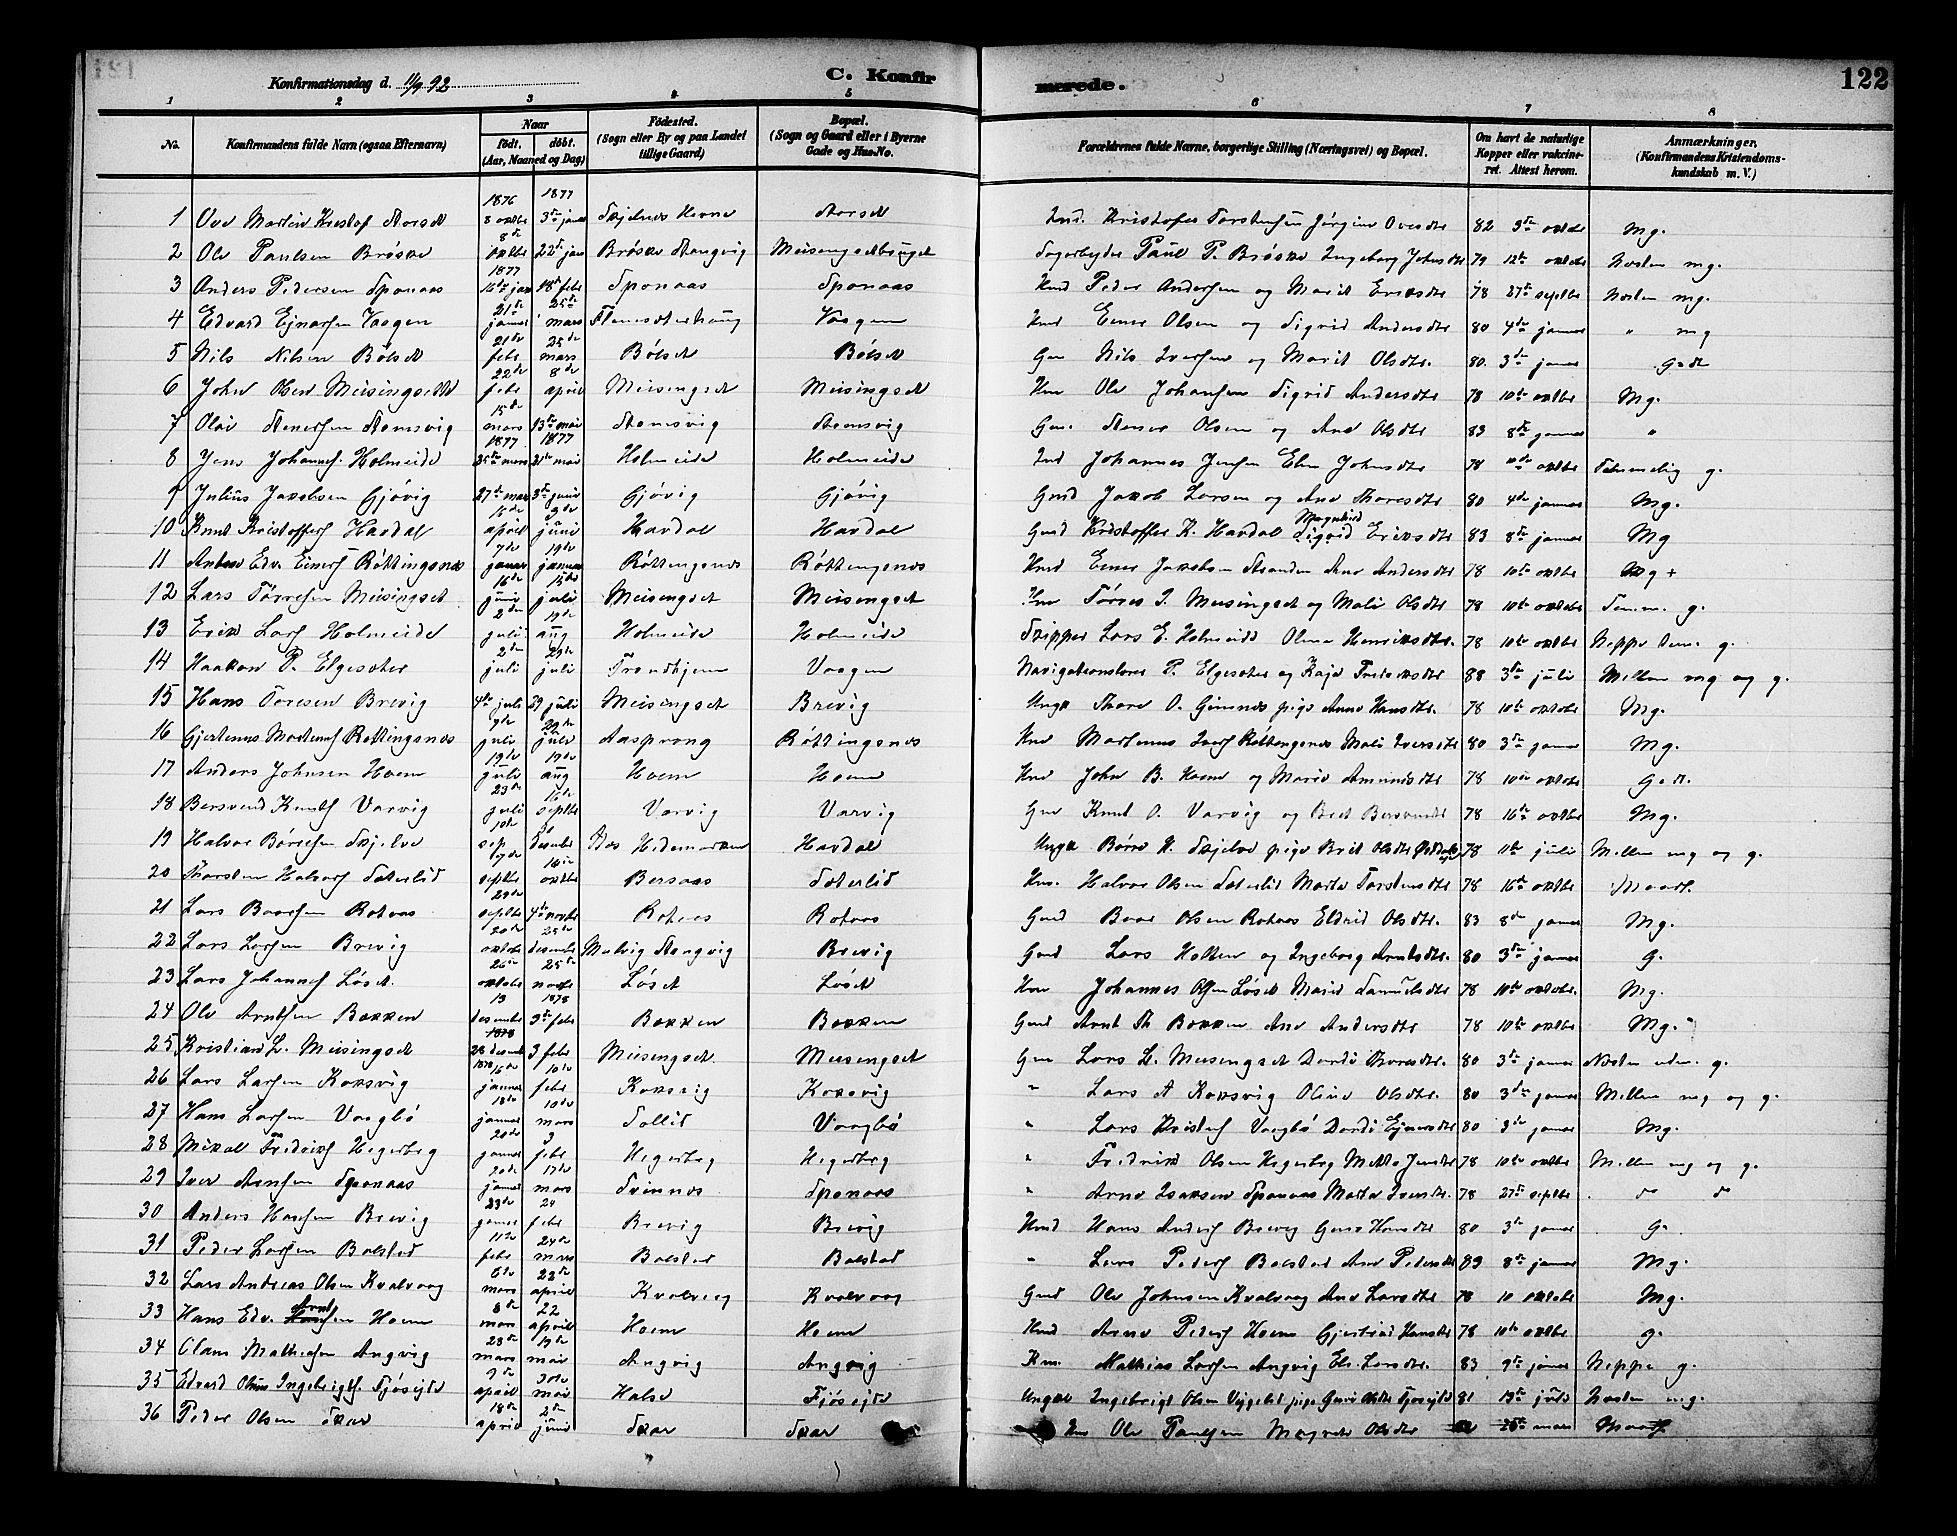 Konfirmationsdag d. 11/9 92
C. Konfirmerede.
122
1 2 3 4 5 6 7 8
No.
Konfirmandens fulde Navn (ogsaa Efternavn)
Naar
født. døbt.
(Aar, Maaned og Dag)
Fødested.
(Sogn eller By og paa Landet
tillige Gaard)
Bopæl.
(Sogn og Gaard eller i Byerne
Gade og Hus-No.
Forældrenes fulde Navne, borgerlige Stilling (Næringsvei) og Bopæl.
Om havt de naturlige
Kopper eller vaksine-
ret. Attest herom.
Anmærkninger.
(Konfirmandens Kristendoms-
kundskab m. V.)
1876 1877
1 Ove Martin Kristof Aarset 8 oktbr 3de januar Aarset 82 3de oktbr Mg.
2 Ole Paulsen Brøske oktbr 22de jan Brøske Stangvig Paul P. Brøske Ingeborg Johnsdtr 79 12te oktbr Næsten mg.
1877
3 Anders Pedersen Sponaas 16de jan 18de febr Sponaas Sponaas Peder Andersen og Marit Eriksdtr 78 27de septbr Næsten mg.
4 Edvard Ejnarsen Vaagen 21de januar 25de mars Vaagen Einar Olsen og Sigrid Andersdtr 80 4de januar " mg
5 Nils Nilsen Bølset 21de febr 25de mars Bølset Bølset Nils Iversen og Marit Olsdtr. 80. 3de januar Godt
6 John Olsen Meisingsett 22de febr 8de april Meisingset Meisingset Ole Johansen Sigrid Andersdtr 78 10de oktbr Mg.
7 Olai Stenersen Stomsvig 15de mars 13de mai Stomsvig Stomsvig Stener Olsen og Ane Olsdtr 83 8de januar "
1877 1877
8 Jens Johannesf. Holmeide 25de mars 21de mai Holmeide Holmeide Johannes Jensen Elen Johnsdtr 78 10de oktbr Temmelig g.
9 Julius Jakobsen Gjøvig 27de mar 3de juni Gjøvig Gjøvig Jakob Larsen og Ane Thoresdtr 80 4de januar Mg.
10 Knut Kristoffersf Havdal 15de april 9de juni Havdal Havdal Kristoffer K. Havdal Sigrid Eriksdtr 83 8de januar Mg
11 Anton Edv. Einersf Røttingsnes 7de januar 19de januar Røttingsnes Røttingsnes Einer Jakobsen Stranden Ane Andersdtr 78 10de oktbr Mg +
12 Lars Tørresen Meisingset 16de juni 15de juli Meisingset Meisingset Tørres I. Meisingset og Mali Olsdtr 78 10de oktober Tem. g.
13 Erik Larsf Holmeide 2den juli 19de aug Holmeide Holmeide Skipper Lars E. Holmeide Olina Henriksdtr. 78 10de oktbr Neppe tem. g.
14 Haakon P. Elgesæter 2den juli 29de juli Trondhjem Vaagen Navigationslærer P. Elgesæter og Kaja Fredriksdtr 88 3de juli Mellem mg og g.
15 Hans Toresen Brevig 4de juli 29 juli Meisingset Brevig Ungk Thore O. Gimnes pige Anne Hansdtr. 78 10de oktbr Mg.
16 Gjertenus Martenusf Røttingsnes 9de juli 29de juli Aasprong Røttingsnes Martenus Iversf Røttingsnes Mali Iversdtr 80 3de januar Mg.
17 Anders Johnsen Hoem 19de juli 19de aug Hoem Hoem John B. Hoem og Marie Amundsdtr 78 10de oktbr Godt.
18 Bersvend Knutsf Varvig 23de juli 16de septbr Varvig Varvig Knut O. Varvig og Beret Bersvendsdtr 78 16de oktbr Mg.
19 Halvor Børresen Skjelve 10de sep desember Hedemarken Havdal Ungk Børre H. Skjelve pige Brit Olsdtr 78 11te juli Mellem mg og g.
20 Thorsten Halvorsf Sæterlid 17de septbr 14de oktbr Bersaas Sæterlid Halvor Olsen Sæterlid Marta Torstensdtr 78 16de oktbr
21 Lars Baarsen Rotaas 29de septbr 4de novbr Rotaas Rotaas Baar Olsen Rotaas Eldrid Olsdtr. 83 8de januar Mg.
22 Lars Larsen Brevig 20de oktober desember Stangvig Brevig Lars Holten og Ingeborg Arntsdtr. 80 3de januar G.
23 Lars Johannesf Løset. 26de oktober 25de novbr Løset Løset Johannes Olsen Løset Marit Samuelsdtr 78 10de oktober. Mg.
24 Ole Arntsen Bakken 13 desember 1878 3de febr Bakken Bakken Arnt Th Bakken Ane Andersdtr 78 10de oktbr Mg.
25 Kristian L. Meisingset 28 desembr 3 febr Meisingset Meisingset Lars L. Meisingset Dordi Baresdtr. 80 3de januar g.
26 Lars Larsen Korsvig 1878 16de januar 10de febr Korsvig Korsvig " Lars A Korsvig Oline Olsdtr. 80 3de januar Mellem mg og g.
27 Hans Larsen Vaagbø 18de januar 10de mars Sollid Vaagbø " Lars Kristof Vaagbø Dordi Ejnersdtr 80 3de januar Mg.
28 Mikal Fredriksf Hegerberg 20de januar 3 febr Hegerberg Hegerberg " Fredrik Olsen Hegerberg Mette Jensdtr 78 10de oktbr Mellem mg og g.
29 Iver Arnesen Sponaas 20de januar 17de mars Svinnes Sponaas " Arne Isaksen Sponaas Marta Iversdtr. 78 27de septbr do do
30 Anders Hansen Brevig 23de januar 24 febr Brevig Brevig Hans Andersf Brevig Hansdtr 80 3de januar G.
31 Peder Larsen Bolstad 11te febr 24de mars Bolstad Bolstad " Lars Pedersf Bolstad Ane Pedersdtr 83 8de januar Mg.
32 Lars Andreas Olsen Kvalvaag 6te mars 22de april Kvalvaag Kvalvaag Ole Johnsen Kvalvaag Ane Larsdtr 78 10 oktober Mg.
33 Hans Edv. Arntsen Hoem 8de mars 22 april Hoem Hoem Arne Pedersf Hoem Gjertrud Hansdtr 78 10de oktbr g.
34 Olaus Mathiasen Angvig 28de mars 19de mai Angvig Angvig Mathias Larsen Angvig Eli Larsdtr. 83 9de januar Neppe g.
35 Edvard Olaus Ingebrigtsf. Fjøseide 9de april 30de mai Halse Fjøseide Ungkar Ingebrigt Olsen pige Guri Olsdtr Fjøseide 81 13de juli Næsten mg.
36 Peder Olsen Skar 18de april 2den juni Skar Skar Ole Paulsen Magnete Olsdtr mars